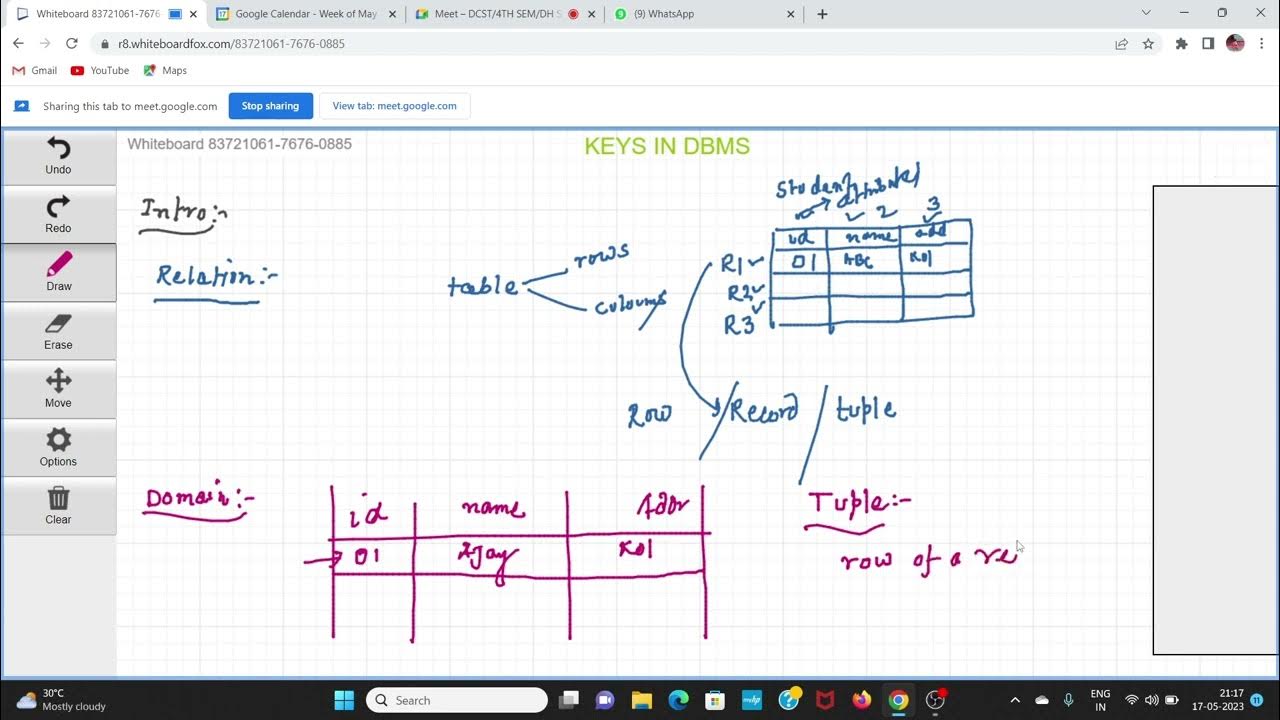 Whiteboard 83721061-7676
Google Calendar - Week of May
Meet – DCST/4TH SEM/DH S
(9) WhatsApp
r8.whiteboardfox.com/83721061-7676-0885
Gmail
YouTube
Maps
Sharing this tab to meet.google.com
Stop sharing
View tab: meet.google.com
Whiteboard 83721061-7676-0885
KEYS IN DBMS
Undo
Redo
Draw
Erase
Move
Options
Clear
Intro:-
Relation:-
table
rows
Student
2 3
id name add
R1 01 ABC Kol
R2
R3
Row / Record / tuple
Domain:-
id name Addr
01 Kol
Tuple:-
row of a re
30°C
Mostly cloudy
Search
ENG
IN
21:17
17-05-2023
11